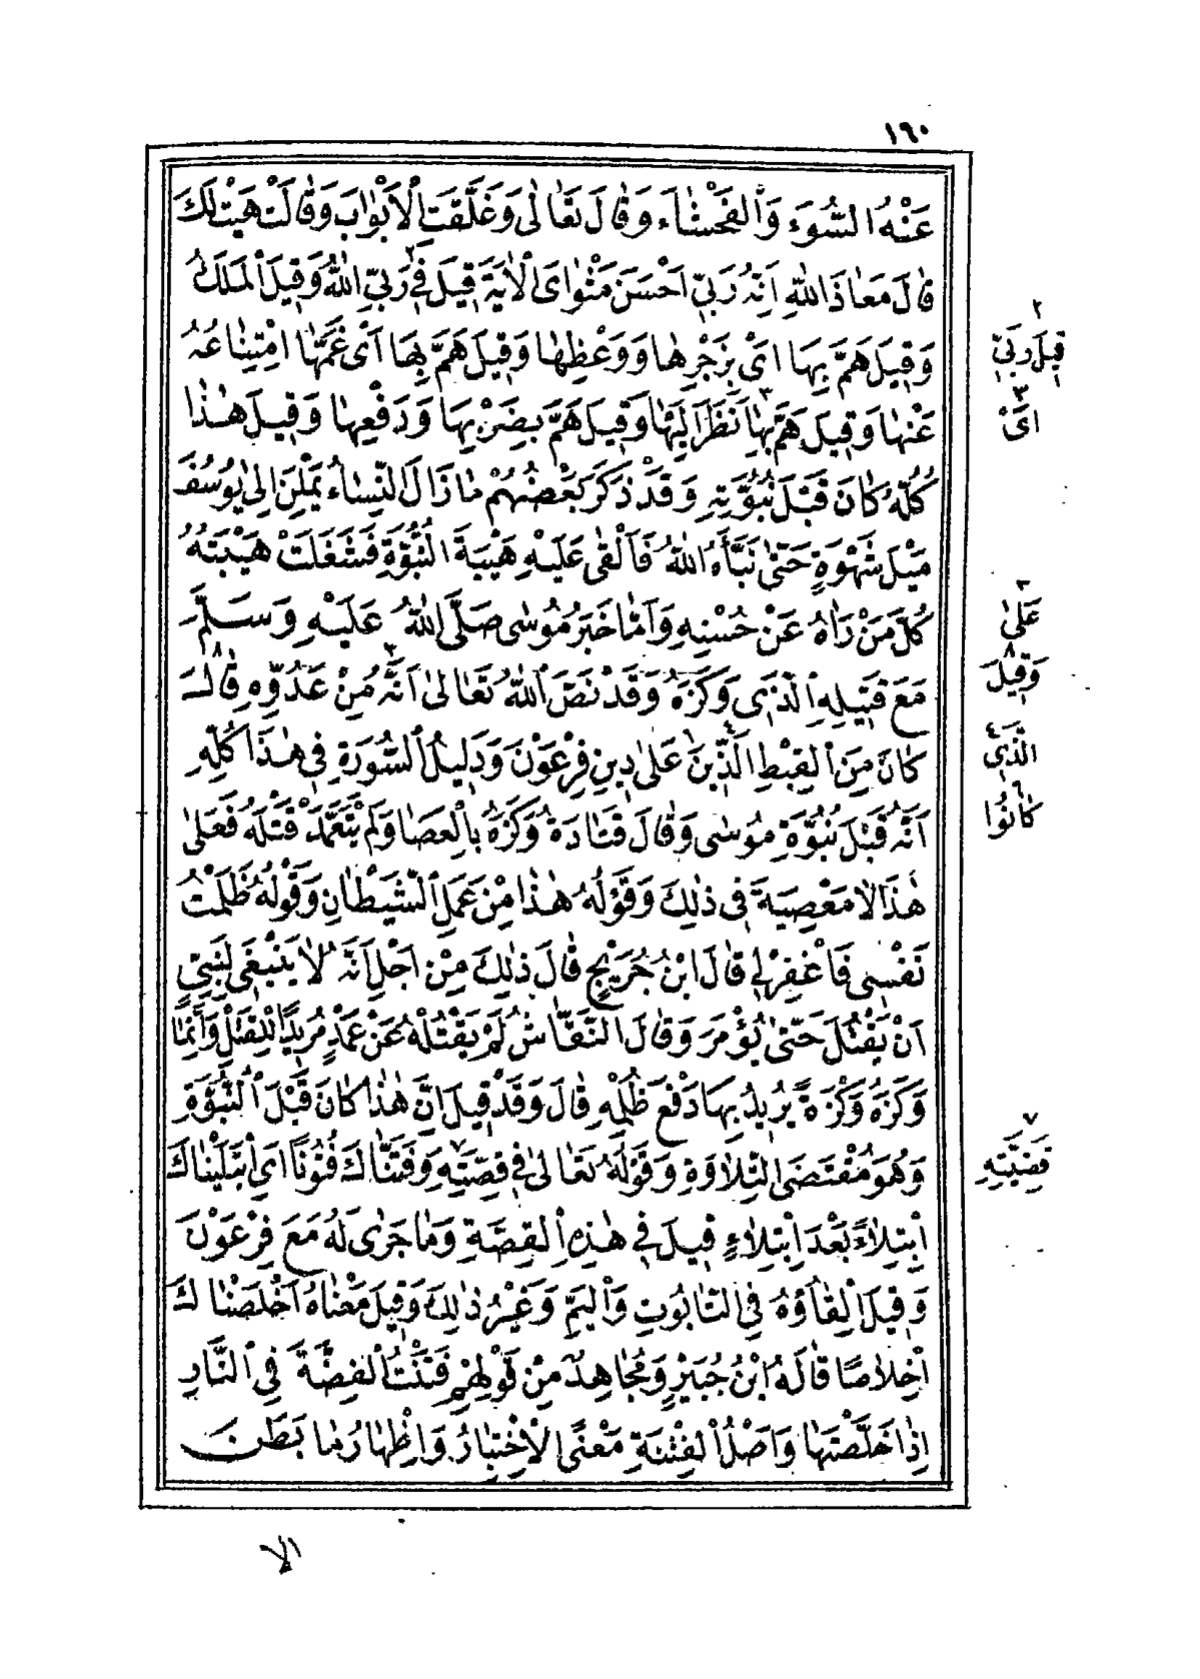 ١٦٠
عَنْهُ السُّوءَ وَالْفَحْشَاءَ وَقَالَ تَعَالَى وَغَلَّقَتِ الْأَبْوَابَ وَقَالَتْ هَيْتَ لَكَ
قَالَ مَعَاذَ اللّٰهِ اِنَّهُ رَبِّي اَحْسَنَ مَثْوَايَ الْاٰيَةَ قِيلَ فِي رَبِّي اللّٰهُ وَقِيلَ الْمَلَكُ
وَقِيلَ هَمَّ بِهَا اَيْ بِزَجْرِهَا وَوَعْظِهَا وَقِيلَ هَمَّ بِهَا اَيْ غَمَّهَا امْتِنَاعُهُ
عَنْهَا وَقِيلَ هَمَّ بِهَا نَظَرَ اِلَيْهَا وَقِيلَ هَمَّ بِضَرْبِهَا وَدَفْعِهَا وَقِيلَ هٰذَا
كُلُّهُ كَانَ قَبْلَ نُبُوَّتِهِ وَقَدْ ذَكَرَ بَعْضُهُمْ مَا زَالَ النِّسَاءُ يَمِلْنَ اِلَى يُوسُفَ
مَيْلَ شَهْوَةٍ حَتَّى نَبَّأَهُ اللّٰهُ فَاَلْقَى عَلَيْهِ هَيْبَةَ النُّبُوَّةِ فَشَغَلَتْ هَيْبَتُهُ
كُلَّ مَنْ رَاٰهُ عَنْ حُسْنِهِ وَاَمَّا خَبَرُ مُوسَى صَلَّى اللّٰهُ عَلَيْهِ وَسَلَّمَ
مَعَ قَتِيلِهِ الَّذِي وَكَزَهُ وَقَدْ نَصَّ اللّٰهُ تَعَالَى اَنَّهُ مِنْ عَدُوِّهِ قَالَ
كَانَ مِنَ الْقِبْطِ الَّذِينَ عَلَى دِينِ فِرْعَوْنَ وَدَلِيلُ السُّورَةِ فِي هٰذَا كُلِّهِ
اَنَّهُ قَبْلَ نُبُوَّةِ مُوسَى وَقَالَ قَتَادَةُ وَكَزَهُ بِالْعَصَا وَلَمْ يَتَعَمَّدْ قَتْلَهُ فَعَلَى
هٰذَا لَا مَعْصِيَةَ فِي ذٰلِكَ وَقَوْلُهُ هٰذَا مِنْ عَمَلِ الشَّيْطَانِ وَقَوْلُهُ ظَلَمْتُ
نَفْسِي فَاغْفِرْ لِي قَالَ ابْنُ جُرَيْجٍ قَالَ ذٰلِكَ مِنْ اَجْلِ اَنَّهُ لَا يَنْبَغِي لِنَبِيٍّ
اَنْ يَقْتُلَ حَتَّى يُؤْمَرَ وَقَالَ النَّقَّاشُ لَمْ يَقْتُلْهُ عَنْ عَمْدٍ مُرِيدًا لِلْقَتْلِ وَاِنَّمَا
وَكَزَهُ وَكْزَةً يُرِيدُ بِهَا دَفْعَ ظُلْمِهِ قَالَ وَقَدْ قِيلَ اِنَّ هٰذَا كَانَ قَبْلَ النُّبُوَّةِ
وَهُوَ مُقْتَضَى التِّلَاوَةِ وَقَوْلُهُ تَعَالَى فِي قِصَّتِهِ وَفَتَنَّاكَ فُتُونًا اَيِ ابْتَلَيْنَاكَ
ابْتِلَاءً بَعْدَ ابْتِلَاءٍ قِيلَ فِي هٰذِهِ الْقِصَّةِ وَمَا جَرَى لَهُ مَعَ فِرْعَوْنَ
وَقِيلَ اِلْقَاؤُهُ فِي التَّابُوتِ وَالْيَمِّ وَغَيْرُ ذٰلِكَ وَقِيلَ مَعْنَاهُ اَخْلَصْنَاكَ
اِخْلَاصًا قَالَهُ ابْنُ جُبَيْرٍ وَمُجَاهِدٌ مِنْ قَوْلِهِمْ فَتَنْتُ الْفِضَّةَ فِي النَّارِ
اِذَا خَلَّصْتَهَا وَاَصْلُ الْفِتْنَةِ مَعْنَى الْاِخْتِبَارِ وَاِظْهَارُ مَا بَطَنَ
٢
قِيلَ رَبِّي
٣
اَيْ
عَلَى
٨
وَقِيلَ
٤
الَّذِي
٦
كَانُوا
٧
قَضِيَّتِهِ
الا